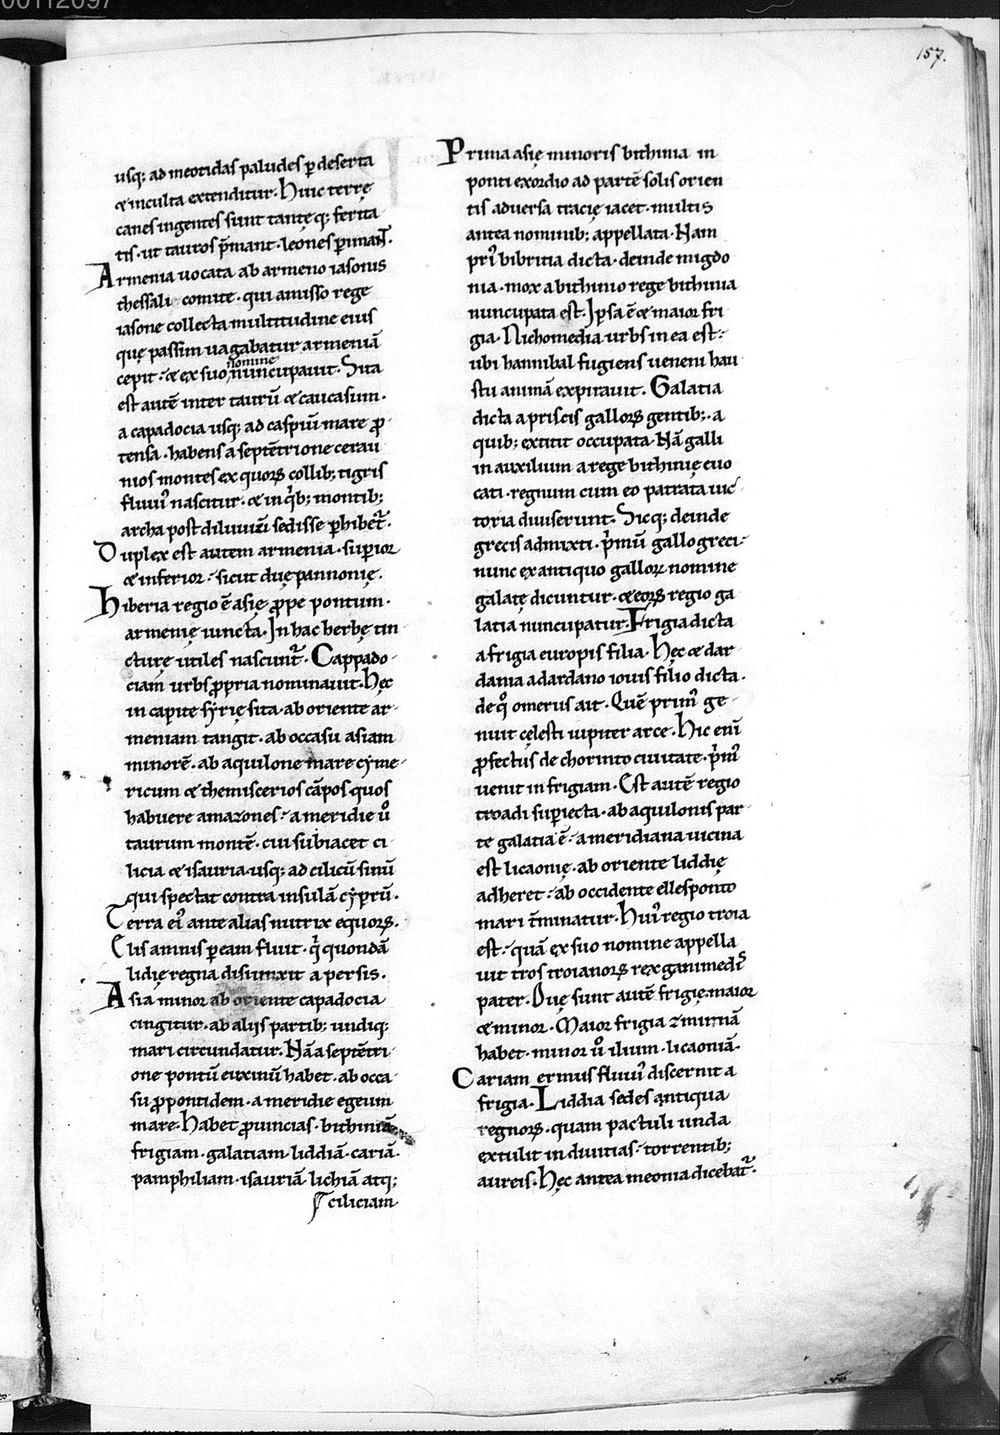 00112097
157.
usq; ad meotidas paludes p̱ deserta
& inculta extenditur · Huic terrę
canes ingentes sunt tantęq; ferita
tis · ut tauros p̄mant · leones p̱imanť.
Armenia uocata ab armeno iasonis
thessali comite · qui amisso rege
iasone collecta multitudine eius
quę passim uagabatur armeniā
nomine
cepit · & ex suo nuncupauit · Sita
est autē inter taurū & caucasum ·
a capadocia usq; ad caspiū mare ꝓ
tensa · habens a septētrione cerau
nios montes ex quoꝝ collib; tigris
fluuiꝰ nascitur · & in qͥb; montib;
archa post diluuiū sedisse ꝑhibet᷑.
Duplex est autem armenia · supior
& inferior · sicut duę pannonię.
Hiberia regio ē asię ꝓpe pontum ·
armenię iuncta · In hac herbę tin
cturę utiles nascunt᷑ · Cappado
ciam urbs ꝓpria nominauit · Hęc
in capite syrię sita · ab oriente ar
meniam tangit · ab occasu asiam
minorē · ab aquilone mare cyme
ricum & themiscerios cāpos quos
habuere amazones · a meridie ū
taurum montē · cui subiacet ci
licia & isauria · usq; ad cilicū sinū
qui spectat contra insulā cyprū ·
Terra eiꝰ ante alias nutrix equoꝝ ·
Elis amnis ꝑ eam fluit · q̇ quondā
lidię regna disiunxit a persis.
Asia minor ab oriente capadocia
cingitur · ab alijs partib; undiq;
mari circundatur · Nā a septētri
one pontū euxinū habet · ab occa
su ꝓpontidem · a meridie egeum
mare · Habet ꝓuincias · bithiniā
frigiam · galatiam · liddiā · cariā ·
pamphiliam · isauriā · lichiā atq;
ciliciam
Prima asię minoris bithinia in
ponti exordio ad partē solis orien
tis aduersa tracię iacet · multis
antea nominib; appellata · Nam
priꝰ bibritia dicta · deinde migdo
nia · mox a bithinio rege bithinia
nuncupata est · Ipsa ē & maior fri
gia · Nichomedia urbs in ea est ·
ubi hannibal fugiens ueneni hau
stu animā expirauit · Galatia
dicta a priscis galloꝝ gentib; · a
quib; extitit occupata · Nā galli
in auxilium a rege bithinię euo
cati · regnum cum eo patrata uic
toria diuiserunt · Sicq; deinde
grecis admixti · p̄mū gallogreci ·
nunc ex antiquo galloꝝ nomine
galatę dicuntur · & eoꝝ regio ga
latia nuncupatur · Frigia dicta
a frigia europis filia · Hęc & dar
dania a dardano iouis filio dicta ·
de qͦ omerus ait · Quē primꝰ ge
nuit cęlesti iupiter arce · Hic eni
ꝓfectus de chorinto ciuitate · p̄mꝰ
uenit in frigiam · Est autē regio
troadi supiecta · ab aquilonis par
te galatia ē · a meridiana uicina
est licaonię · ab oriente liddię
adheret · ab occidente ellesponto
mari t̄minatur · Huiꝰ regio troia
est · quā ex suo nomine appella
uit tros troianoꝝ rex ganimedis
pater · Duę sunt autē frigię · maior
& minor · Maior frigia zmirnā
habet · minor ū ilium · licaoniā ·
Cariam ermus fluuiꝰ discernit a
frigia · Liddia sedes antiqua
regnoꝝ · quam pactuli unda
extulit in diuitias · torrentib;
aureis · Hęc antea meonia dicebat᷑ ·